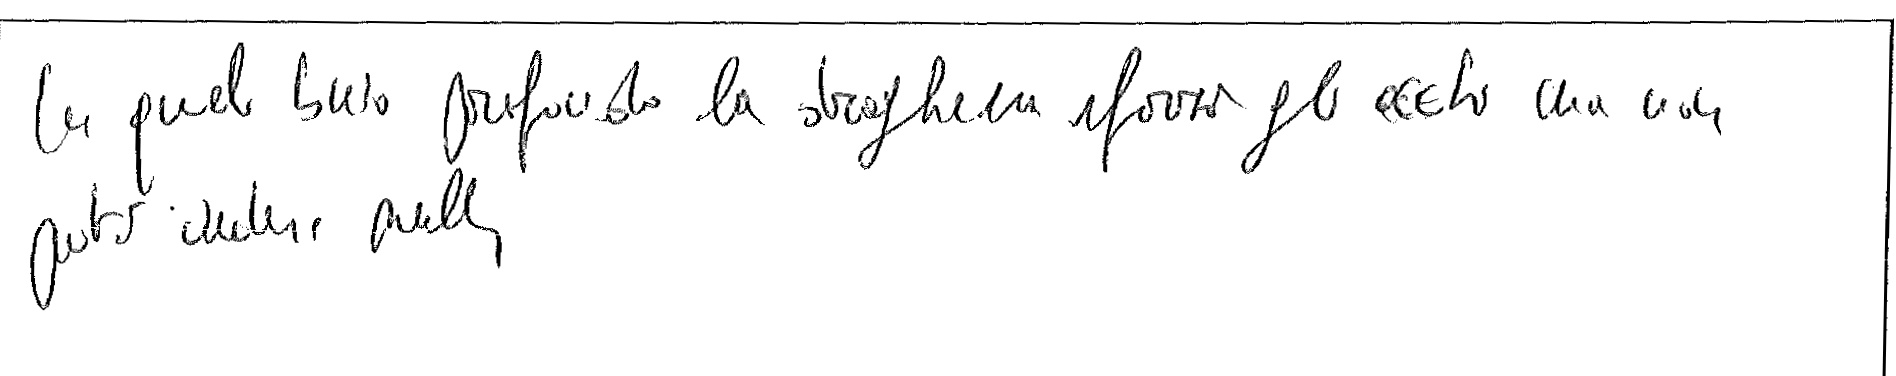 In quel buio profondo la strega sforzò gli occhi ma non
potè vedere nulla